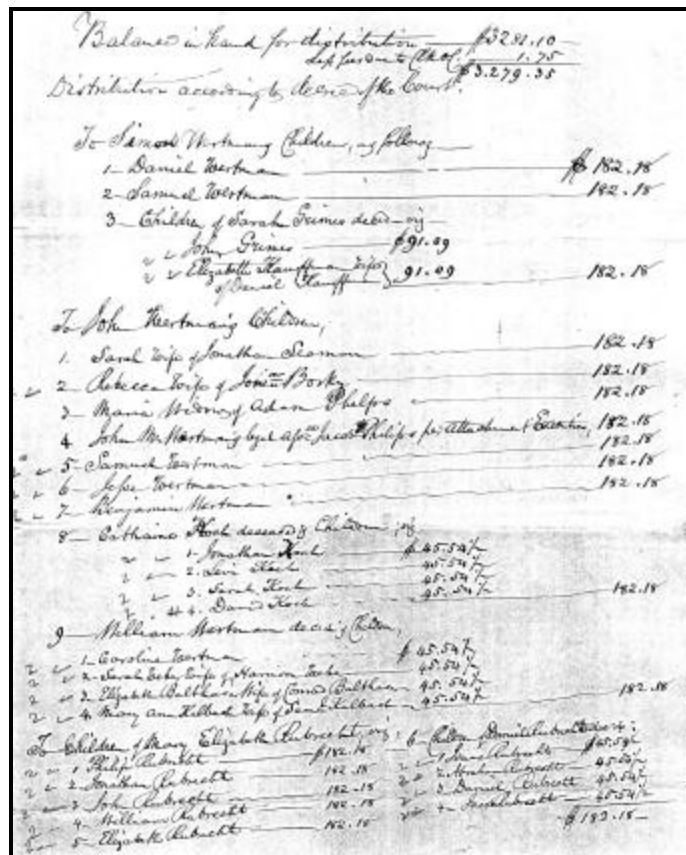 Balance in hand for distribution — $3281.10
1.75
$3.279.35
Distribution according to decree of the Court.
To Simon Wertman's Children, as follows
1 - Daniel Wertman — $ 182.18
2 - Samuel Wertman — 182.18
3 - Children of Sarah Grimes decd. viz
" " John Grimes — $91.09
" " Elizabeth Kauffman Wife 91.09
of Daniel Kauff 182.18
To John Wertman's Children,
1. Sarah Wife of Jonathan Seaman — 182.18
2 - Rebecca Wife of Jonan Borky — 182.18
3 - Maria Widow of Adam Phelps — 182.18
4 John W. Wertman's Jacob Philips per Attachment & Execution, 182.18
5 - Samuel Wertman — 182.18
6 - Jesse Wertman — 182.18
7 - Benjamin Wertman — 182.18
8 - Catharine Koch deceased's Children viz
" " 1 - Jonathan Koch $ 45.54½
" " 2. Levi Koch 45.54½
" " 3. Sarah Koch 45.54½
" " 4. David Koch 45.54½ 182.18
9 - William Wertman decd's Children,
" " 1 - Caroline Wertman $ 45.54½
" " 2 - Sarah Wife of Harrison 45.54½
" " 3 - Elizabeth Balthaser Wife of Conrad Balthaser 45.54½
" " 4. Mary Ann Wife of 45.54½ 182.18
To Children of Mary Elizabeth Rubrecht, viz:
" " 1 Philip Rubrecht — $182.18
" " 2 Jonathan Rubrecht 182.18
" " 3 John Rubrecht 182.18
" " 4 - William Rubrecht 182.18
5 - Elizabeth Rubrecht 182.18
6 - Children of Daniel Rubrecht
" " 1 - Rubrecht $45.54½
" " 2 - Rubrecht 45.54½
" " 3 Daniel Rubrecht 45.54½
" " 4 - Rubrecht 45.54½
$ 182.18